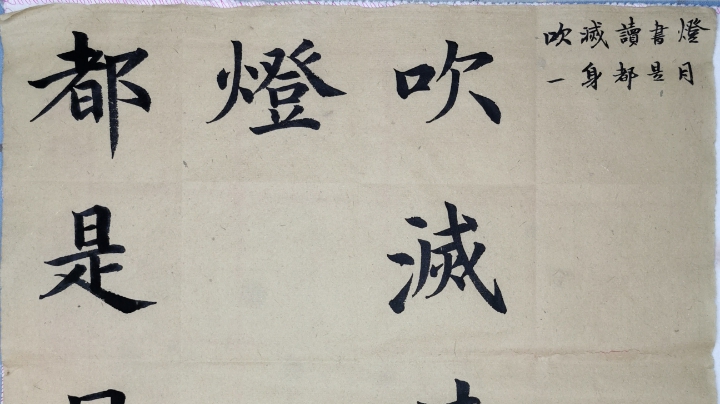 吹滅讀書燈
一身都是月
吹滅
燈
都是